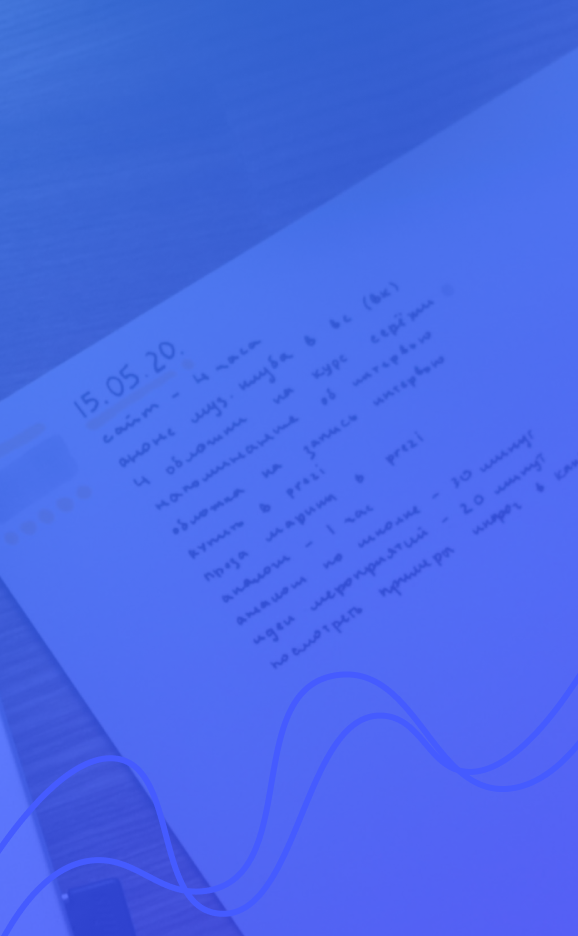 15.05.20.
сайт – 4 часа
анонс муз. клуба в вс (вк)
4 обложки на курс серёжи
напоминание об интервью
обложка на запись интервью
купить в prezi
проза марины в prezi
анализ – 1 час
анализ по школе – 30 минут
идеи мероприятий – 20 минут
посмотреть примеры игр в